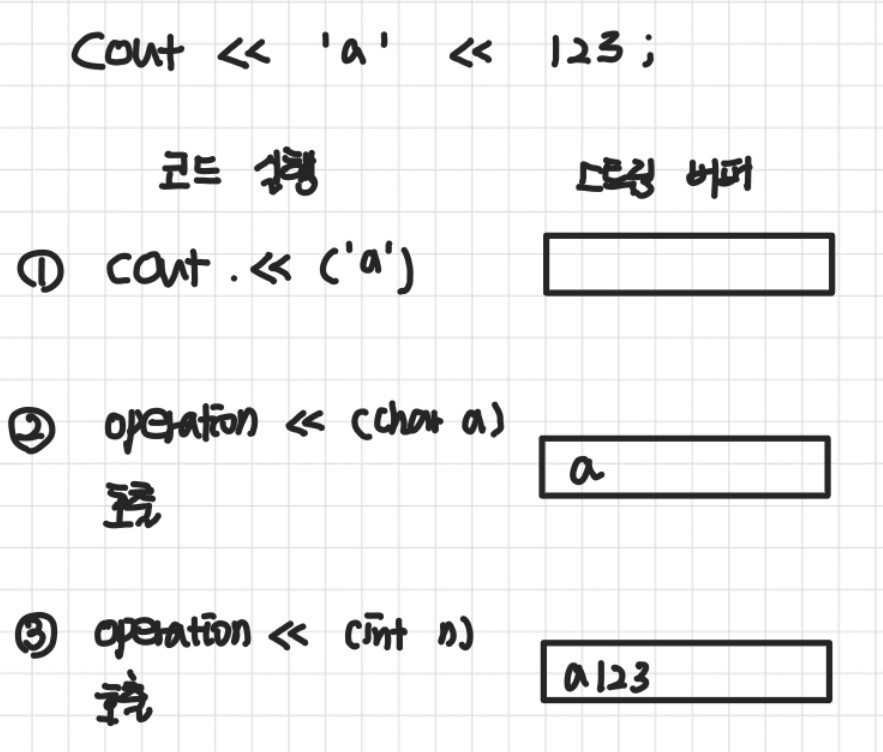 Cout << 'a' << 123 ;
코드 실행 스트림 버퍼
① cout . << ('a')
② operation << (char a)
호출
a
③ operation << (int n)
호출
a123